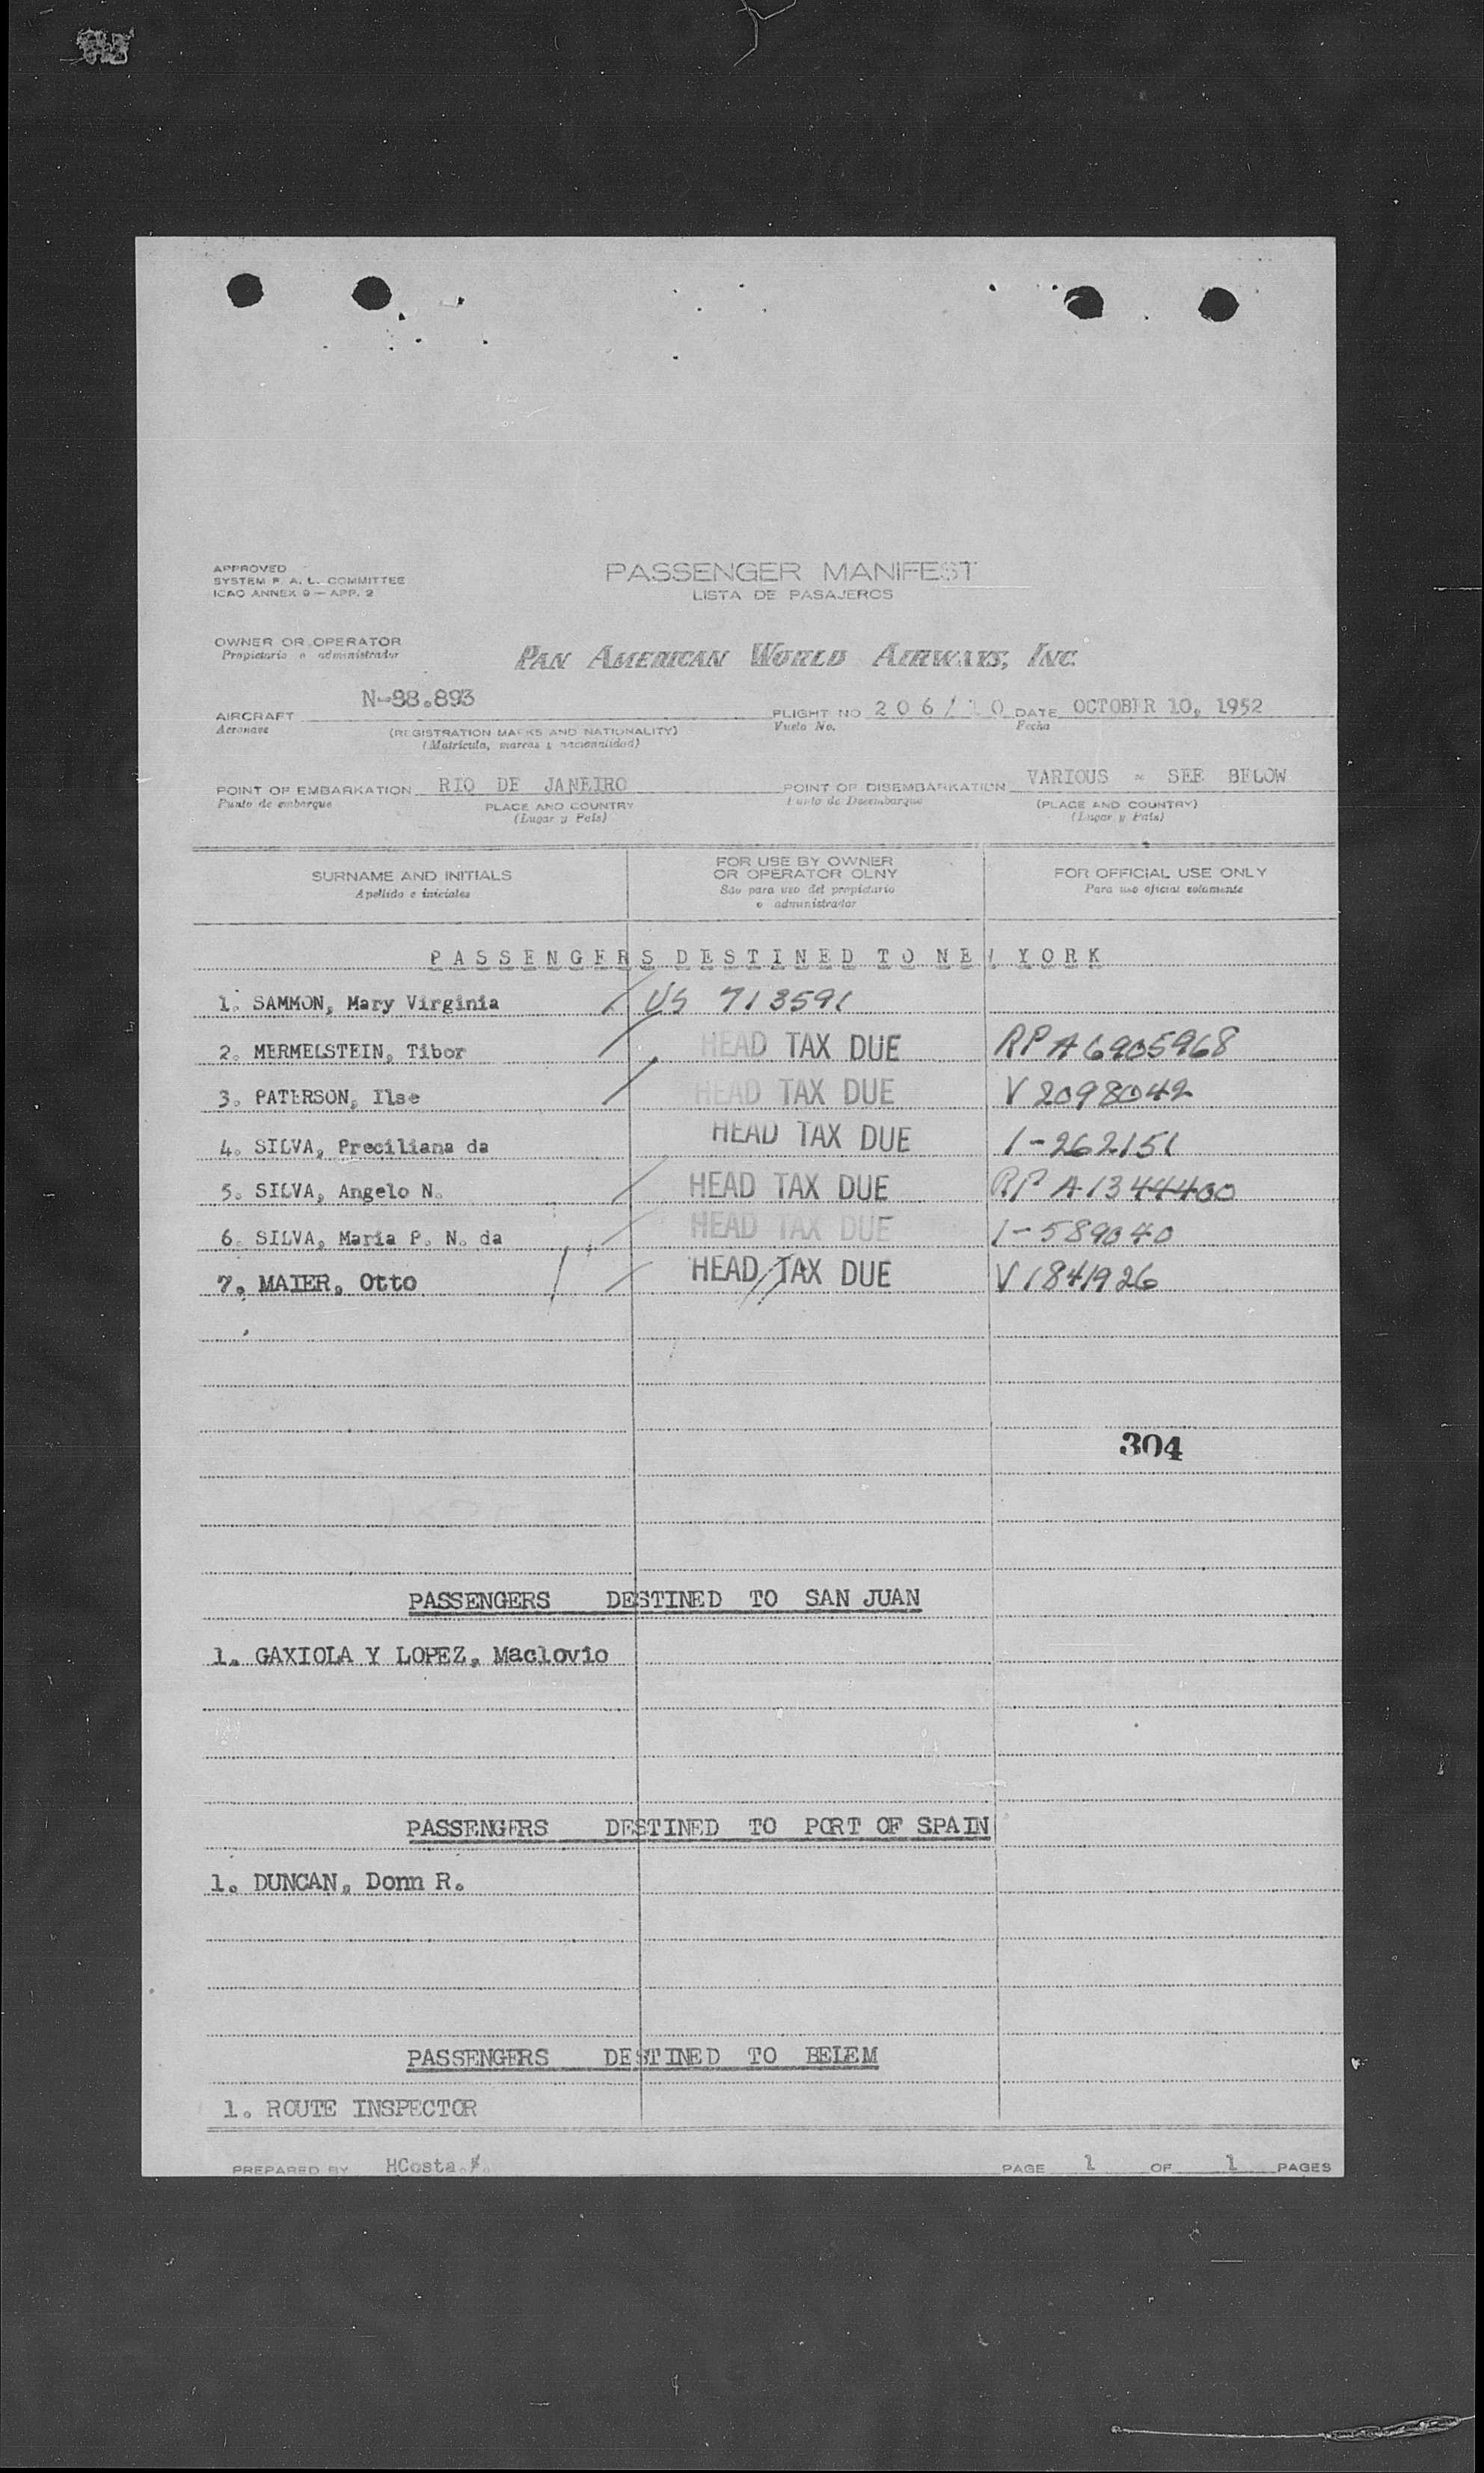 APPROVED
SYSTEM F. A. L. COMMITTEE
ICAO ANNEX 9 — APP. 2
PASSENGER MANIFEST
LISTA DE PASAJEROS
OWNER OR OPERATOR
Propietario o administrador
PAN AMERICAN WORLD AIRWAYS, INC.
AIRCRAFT N-88.893 FLIGHT NO 206/10 DATE OCTOBER 10, 1952
Aeronave (REGISTRATION MARKS AND NATIONALITY) Vuelo No. Fecha
(Matricula, marcas y nacionalidad)
POINT OF EMBARKATION RIO DE JANEIRO POINT OF DISEMBARKATION VARIOUS - SEE BELOW
Punto de embarque PLACE AND COUNTRY Punto de Desembarque (PLACE AND COUNTRY)
(Lugar y Pais) (Lugar y Pais)
SURNAME AND INITIALS FOR USE BY OWNER OR OPERATOR OLNY FOR OFFICIAL USE ONLY
Apellido e iniciales Sao para uso del propietario o administrador Para uso oficial solamente
PASSENGERS DESTINED TO NEW YORK
1. SAMMON, Mary Virginia US 713591
2. MERMELSTEIN, Tibor HEAD TAX DUE RP A6905968
3. PATERSON, Ilse HEAD TAX DUE V 2098042
4. SILVA, Preciliana da HEAD TAX DUE 1-262151
5. SILVA, Angelo N. HEAD TAX DUE RP A1344400
6. SILVA, Maria P. N. da HEAD TAX DUE 1-589040
7. MAIER, Otto HEAD TAX DUE V1841926
304
PASSENGERS DESTINED TO SAN JUAN
1. GAXIOLA Y LOPEZ, Maclovio
PASSENGERS DESTINED TO PORT OF SPAIN
1. DUNCAN, Donn R.
PASSENGERS DESTINED TO BELEM
1. ROUTE INSPECTOR
PREPARED BY HCosta. PAGE 1 OF 1 PAGES